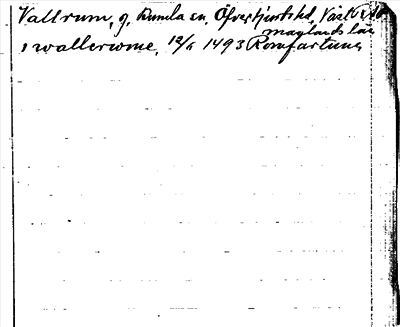 Vallrum, g. Kumla sn, Öfvertjurbo hd, Västman
manlands län
i wallerwme, 12/6 1493 Romfartuna